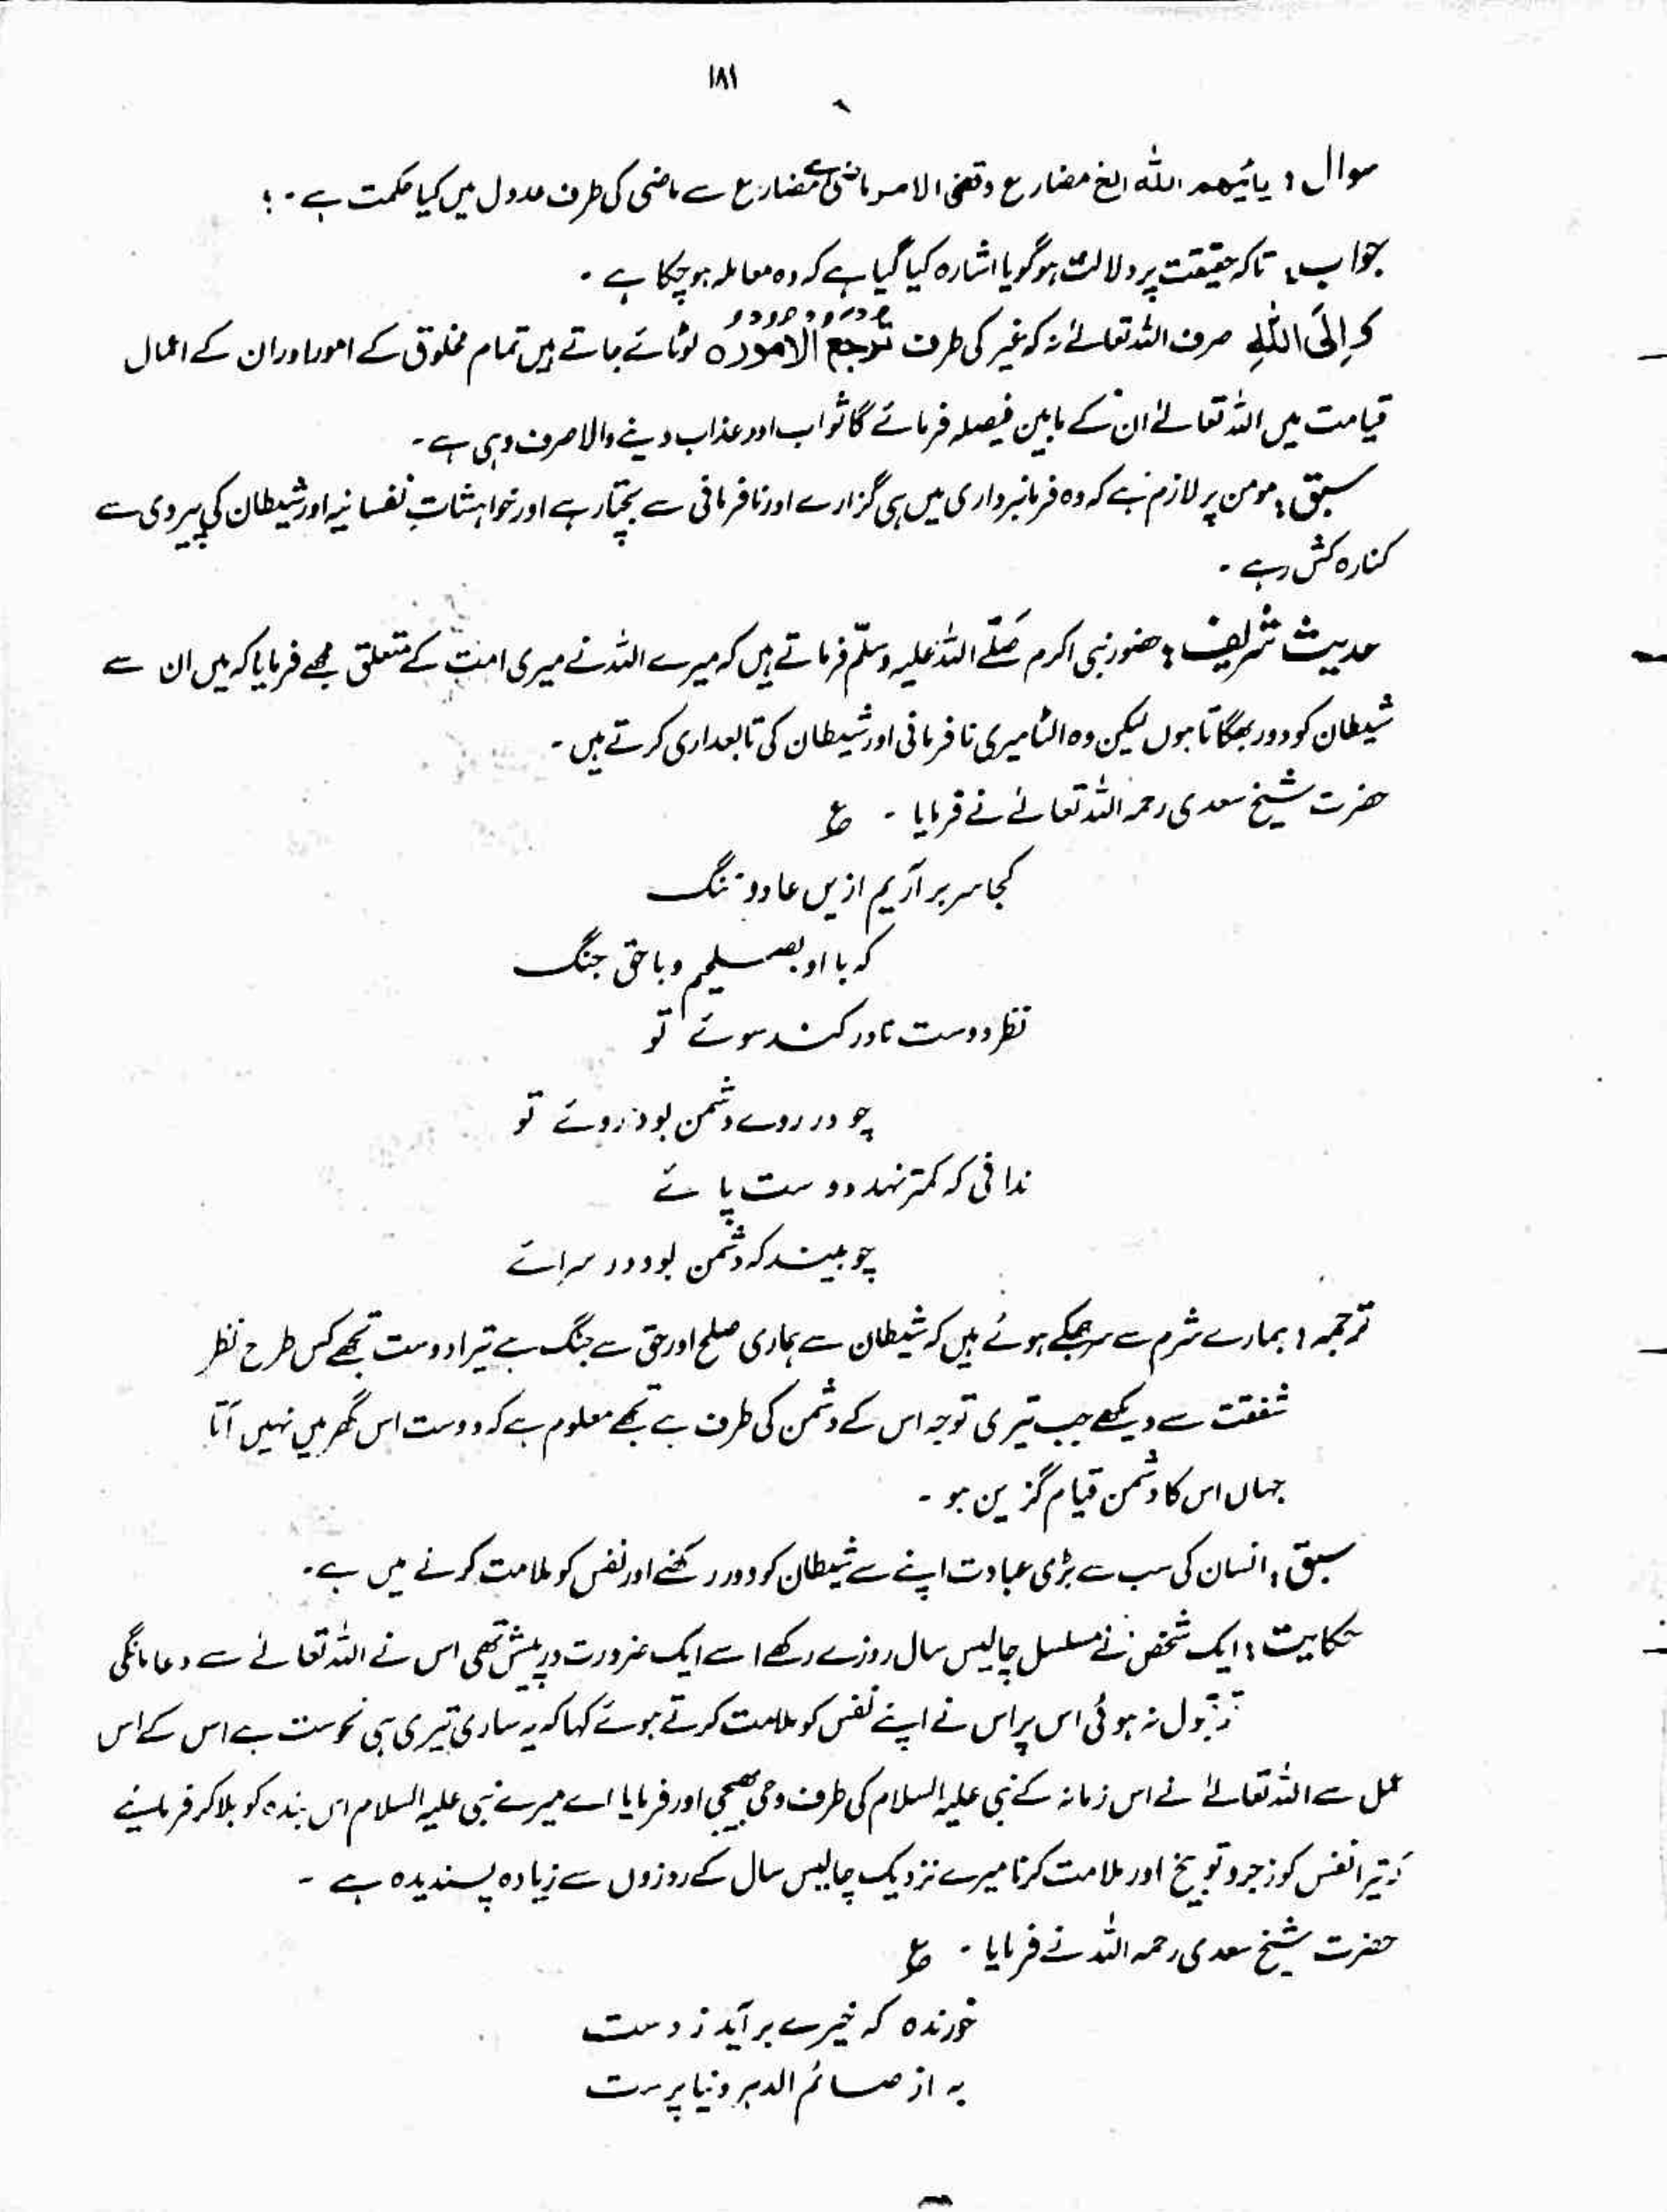 ۱۸۱
سوال : یاتیھم اللہ الخ مضارع وقضی الامر ماضی ہے مضارع سے ماضی کی طرف عدول میں کیا حکمت ہے ۔ ؟
جواب : تاکہ حقیقت پر دلالت ہو گویا اشارہ کیا گیا ہے کہ وہ معاملہ ہو چکا ہے ۔
وَ اِلَی اللّٰہِ صرف اللہ تعالےٰ نہ کہ غیر کی طرف تُرْجَعُ الْاُمُوْرُہ لوٹائے جاتے ہیں تمام مخلوق کے امور اور ان کے اعمال
قیامت میں اللہ تعالےٰ ان کے مابین فیصلہ فرمائے گا ثواب اور عذاب دینے والا صرف وہی ہے ۔
سبق : مومن پر لازم ہے کہ وہ فرمانبرداری میں ہی گزارے اور نافرمانی سے بچتا رہے اور خواہشاتِ نفسانیہ اور شیطان کی پیروی سے
کنارہ کش رہے ۔
حدیث شریف : حضور نبی اکرم صَلّے اللہ علیہ وسلّم فرماتے ہیں کہ میرے اللہ نے میری امت کے متعلق مجھے فرمایا کہ میں ان سے
شیطان کو دور بھگاتا ہوں لیکن وہ الٹا میری نافرمانی اور شیطان کی تابعداری کرتے ہیں ۔
حضرت شیخ سعدی رحمہ اللہ تعالےٰ نے فرمایا ۔ ؏
کجا سر بر آریم ازیں عار و ننگ
کہ با او بصلحیم و با حق جنگ
نظر دوست نادر کند سوئے تو
چو در روے دشمن بود روئے تو
ندانی کہ کمتر نہد دوست پائے
چو بیند کہ دشمن بود در سرائے
ترجمہ : ہمارے شرم سے سر جھکے ہوئے ہیں کہ شیطان سے ہماری صلح اور حق سے جنگ ہے تیرا دوست تجھے کس طرح نظر
شفقت سے دیکھے جب تیری توجہ اس کے دشمن کی طرف ہے تجھے معلوم ہے کہ دوست اس گھر میں نہیں آتا
جہاں اس کا دشمن قیام گزین ہو ۔
سبق : انسان کی سب سے بڑی عبادت اپنے سے شیطان کو دور رکھنے اور نفس کو ملامت کرنے میں ہے ۔
حکایت : ایک شخص نے مسلسل چالیس سال روزے رکھے اسے ایک ضرورت درپیش تھی اس نے اللہ تعالےٰ سے دعا مانگی
تو قبول نہ ہوئی اس پر اس نے اپنے نفس کو ملامت کرتے ہوئے کہا کہ یہ ساری تیری ہی نحوست ہے اس کے اس
عمل سے اللہ تعالےٰ نے اس زمانہ کے نبی علیہ السلام کی طرف وحی بھیجی اور فرمایا اے میرے نبی علیہ السلام اس بندہ کو بلا کر فرمائیے
کہ تیرا نفس کو زجر و توبیخ اور ملامت کرنا میرے نزدیک چالیس سال کے روزوں سے زیادہ پسندیدہ ہے ۔
حضرت شیخ سعدی رحمہ اللہ نے فرمایا ۔ ؏
خورندہ کہ خیرے برآید ز دست
بہ از صائم الدہر دنیا پرست